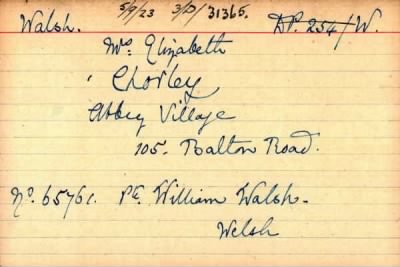 Walsh. 5/9/23 3/D/31365. DP. 254/W.
Mrs. Elizabeth
Chorley
Abbey Village
105. Balton Road.
No. 65761. Pte. William Walsh.
Welsh